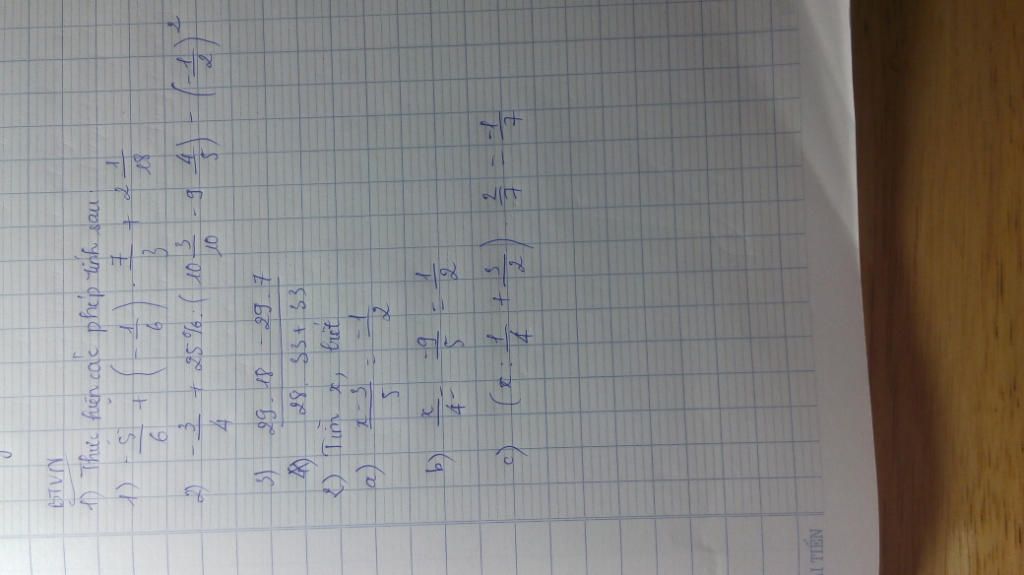 BTVN
1) Thực hiện các phép tính sau.
1) -5/6 + (-1/6) . 7/3 + 2 1/18
2) -3/4 + 25% : (10 3/10 - 9 4/5) - (-1/2)²
3) (29 . 18 - 29 . 7)/(28 . 33 + 33)
2) Tìm x, biết
a) (x - 3)/5 = -1/2
b) x/4 - -9/5 = 1/2
c) (x : 1/4 + 3/2) . 2/7 = -1/7
I TIẾN